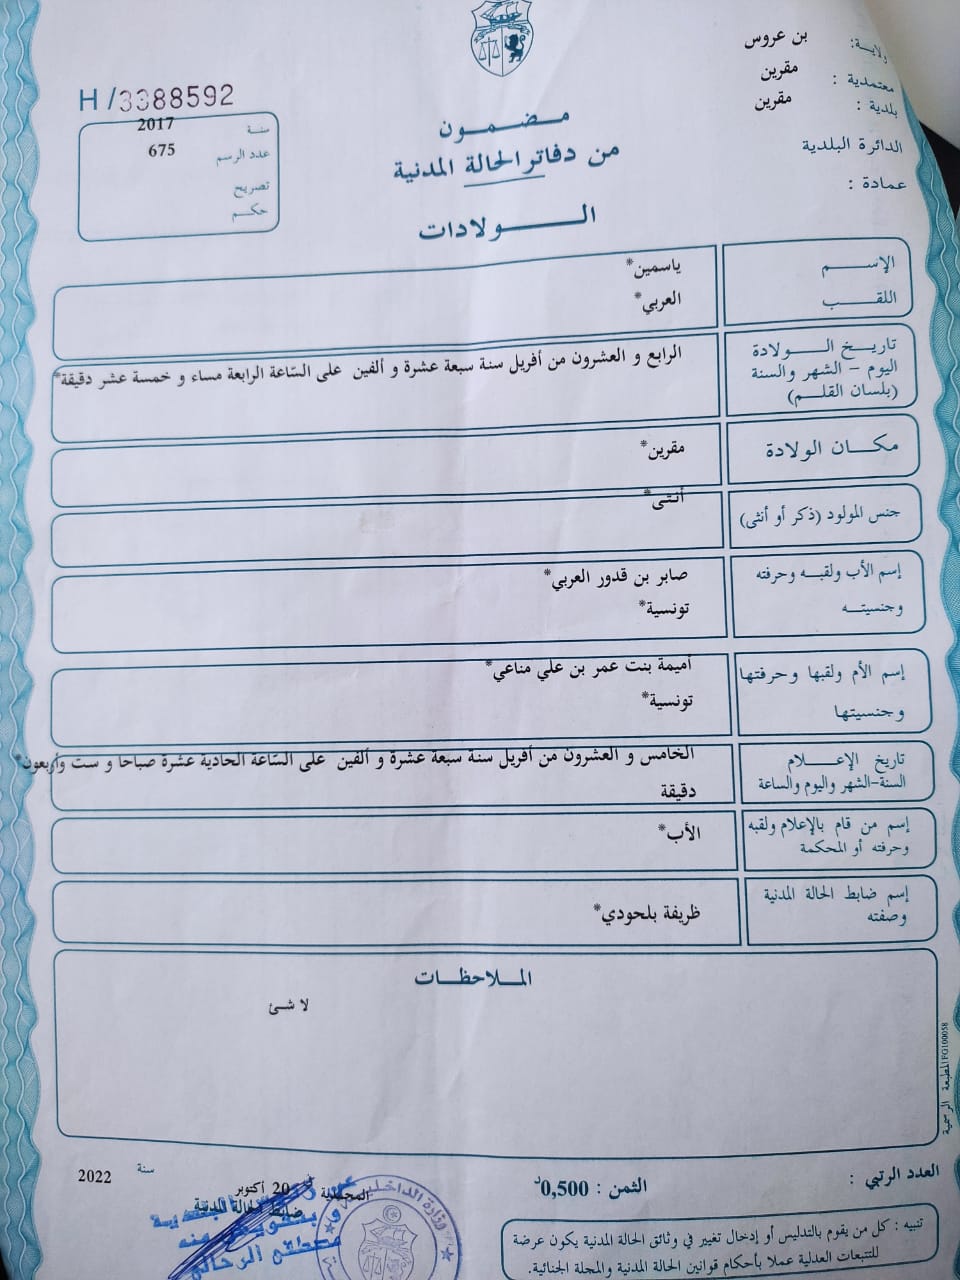 ولاية: بن عروس
معتمدية : مقرين
بلدية : مقرين
الدائرة البلدية
عمادة :
H/3388592
سنة 2017
عدد الرسم 675
تصريح
حكم
مضمون
من دفاتر الحالة المدنية
الولادات
الإسم ياسمين*
اللقب العربي*
تاريخ الولادة
اليوم - الشهر والسنة
(بلسان القلم)
الرابع و العشرون من أفريل سنة سبعة عشرة و ألفين على الساعة الرابعة مساء و خمسة عشر دقيقة*
مكان الولادة مقرين*
جنس المولود (ذكر أو أنثى) أنثى*
إسم الأب ولقبه وحرفته صابر بن قدور العربي*
وجنسيته تونسية*
إسم الأم ولقبها وحرفتها أميمة بنت عمر بن علي مناعي*
وجنسيتها تونسية*
تاريخ الإعلام الخامس و العشرون من أفريل سنة سبعة عشرة و ألفين على الساعة الحادية عشرة صباحا و ست وأربعون*
السنة-الشهر واليوم والساعة دقيقة
إسم من قام بالإعلام ولقبه الأب*
وحرفته أو المحكمة
إسم ضابط الحالة المدنية ظريفة بلحودي*
وصفته
الملاحظات
لا شئ
المطبعة الرسمية FG100058
العدد الرتبي :
الثمن : 0,500د
سنة 2022
20 أكتوبر
ضابط الحالة المدنية
وبتفويض منه
مصطفى الرحالي
وزارة الداخلية
تنبيه : كل من يقوم بالتدليس أو إدخال تغيير في وثائق الحالة المدنية يكون عرضة
للتتبعات العدلية عملا بأحكام قوانين الحالة المدنية والمجلة الجنائية.